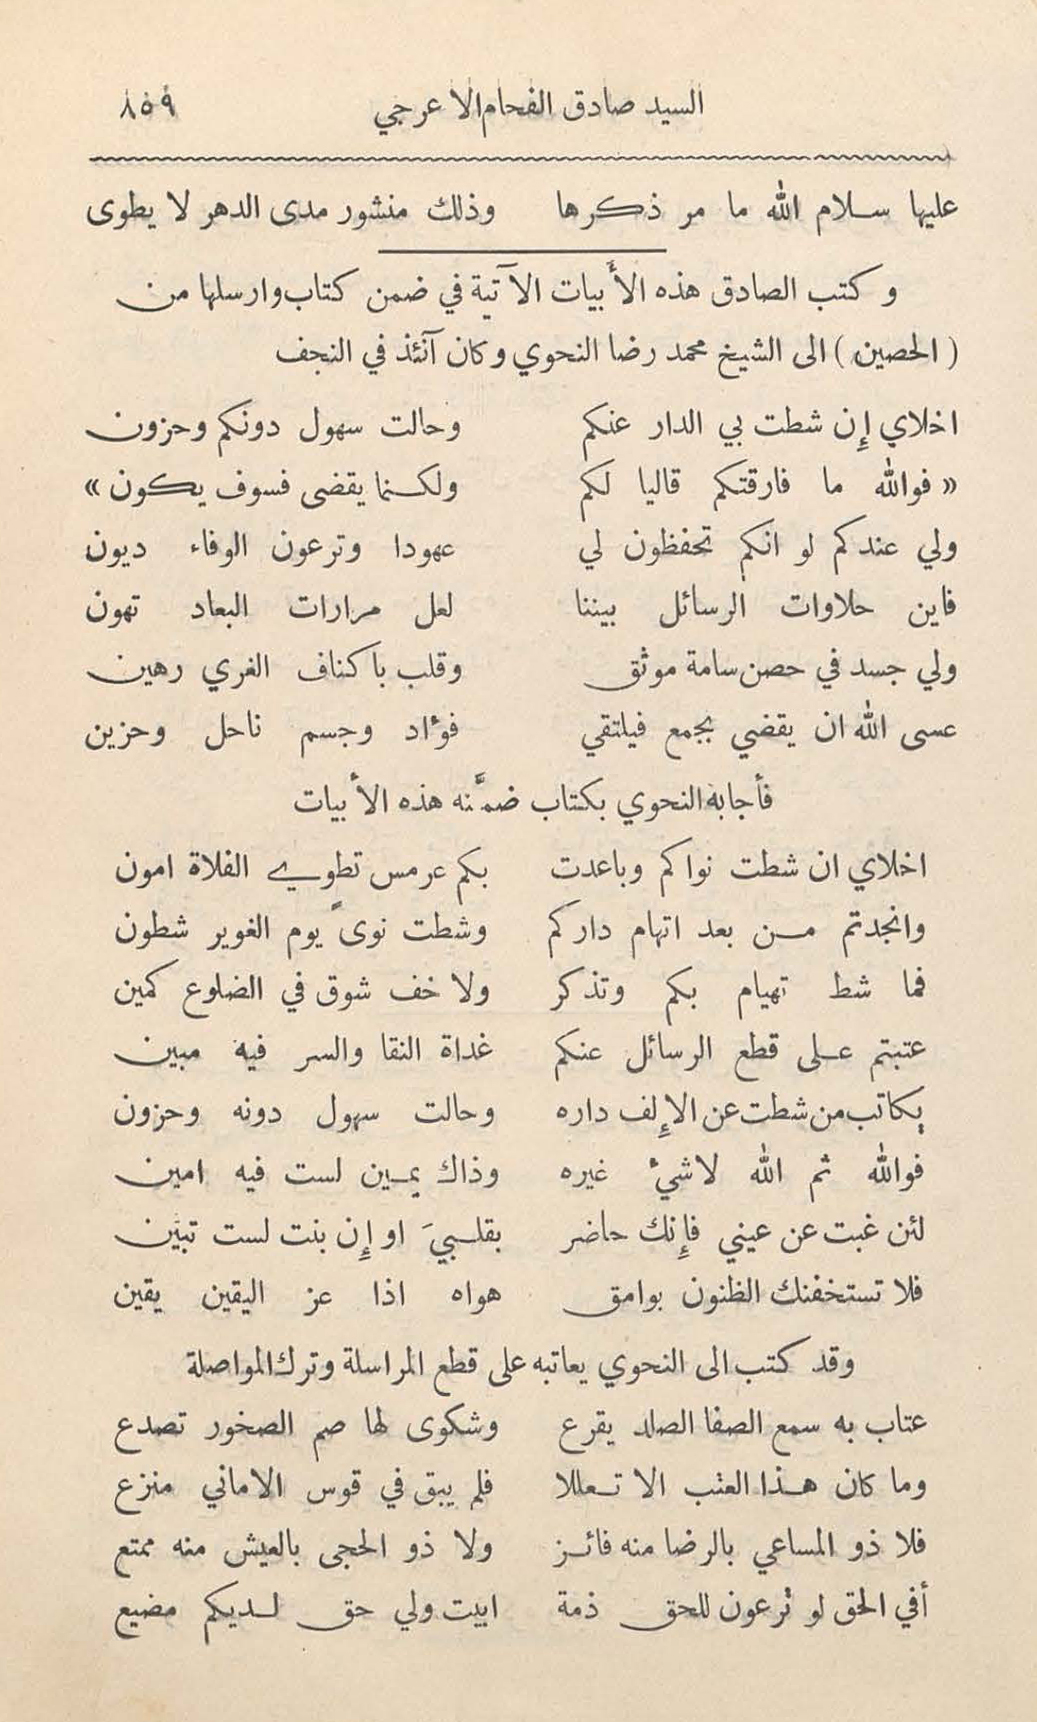 السيد صادق الفحام الاعرجي ٨٥٩
عليها سلام الله ما مر ذكرها وذلك منشور مدى الدهر لا يطوى
وكتب الصادق هذه الأبيات الآتية في ضمن كتاب وارسلها من
( الحصين ) الى الشيخ محمد رضا النحوي وكان آنئذ في النجف
اخلاي إن شطت بي الدار عنكم وحالت سهول دونكم وحزون
« فوالله ما فارقتكم قاليا لكم ولكنما يقضى فسوف يكون »
ولي عندكم لو انكم تحفظون لي عهودا وترعون الوفاء ديون
فاين حلاوات الرسائل بيننا لعل مرارات البعاد تهون
ولي جسد في حصن سامة موثق وقلب باكناف الغري رهين
عسى الله ان يقضي بجمع فيلتقي فؤاد وجسم ناحل وحزين
فأجابه النحوي بكتاب ضمَّنه هذه الأبيات
اخلاي ان شطت نواكم وباعدت بكم عرمس تطوي الفلاة امون
وانجدتم من بعد اتهام داركم وشطت نوىً يوم الغوير شطون
فما شط تهيام بكم وتذكر ولا خف شوق في الضلوع كمين
عتبتم على قطع الرسائل عنكم غداة النقا والسر فيه مبين
يكاتب من شطت عن الإلف داره وحالت سهول دونه وحزون
فوالله ثم الله لا شيء غيره وذاك يمين لست فيه امين
لئن غبت عن عيني فإنك حاضر بقلبيَ او إن بنت لست تبين
فلا تستخفنك الظنون بوامق هواه اذا عز اليقين يقين
وقد كتب الى النحوي يعاتبه على قطع المراسلة وترك المواصلة
عتاب به سمع الصفا الصلد يقرع وشكوى لها صم الصخور تصدع
وما كان هذا العتب الا تعللا فلم يبق في قوس الاماني منزع
فلا ذو المساعي بالرضا منه فائز ولا ذو الحجى بالعيش منه ممتع
أفي الحق لو ترعون للحق ذمة ابيت ولي حق لديكم مضيع